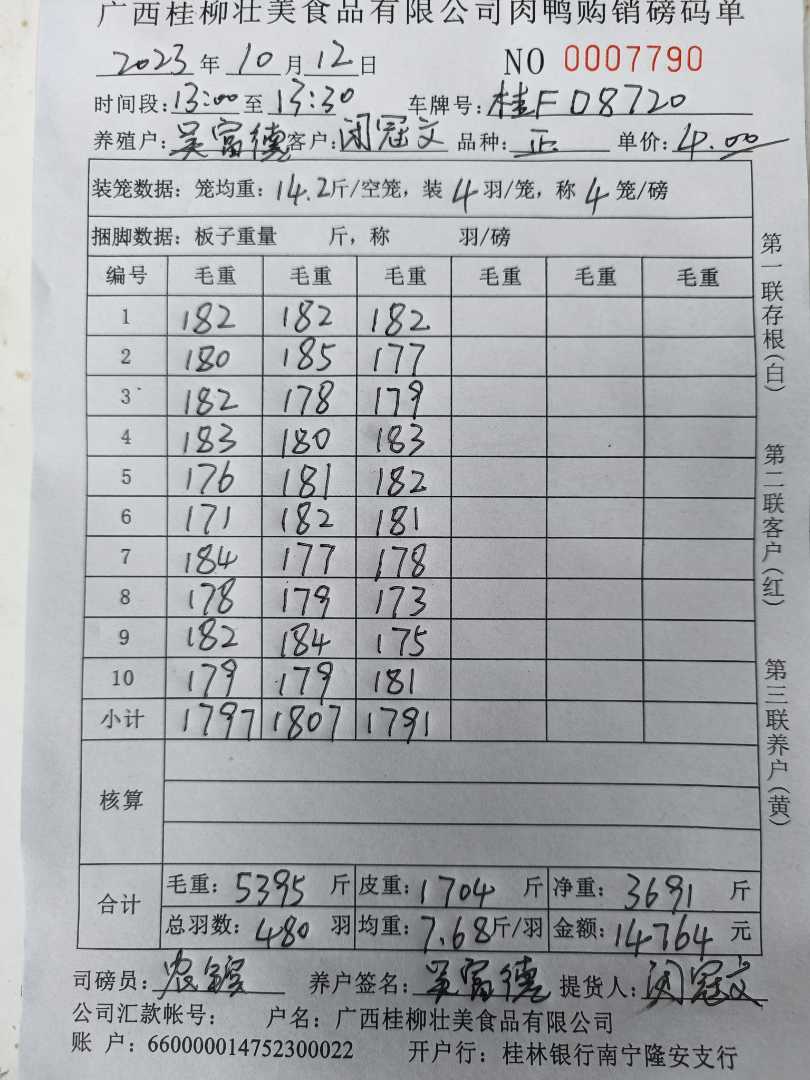 广西桂柳壮美食品有限公司肉鸭购销磅码单
2023年10月12日 NO 0007790
时间段:13:00至13:30 车牌号:桂F D8720
养殖户:吴富德 客户:闭冠文 品种:正 单价:4.00
装笼数据:笼均重:14.2斤/空笼,装4羽/笼,称4笼/磅
捆脚数据:板子重量 斤,称 羽/磅
编号 毛重 毛重 毛重 毛重 毛重 毛重
1 182 182 182
2 180 185 177
3 182 178 179
4 183 180 183
5 176 181 182
6 171 182 181
7 184 177 178
8 178 179 173
9 182 184 175
10 179 179 181
小计 1797 1807 1791
核算
合计 毛重:5395斤 皮重:1704斤 净重:3691斤
总羽数:480羽 均重:7.68斤/羽 金额:14764元
司磅员:农 养户签名:吴富德 提货人:闭冠文
公司汇款帐号: 户名:广西桂柳壮美食品有限公司
账 户:660000014752300022 开户行:桂林银行南宁隆安支行
第一联存根(白)
第二联客户(红)
第三联养户(黄)